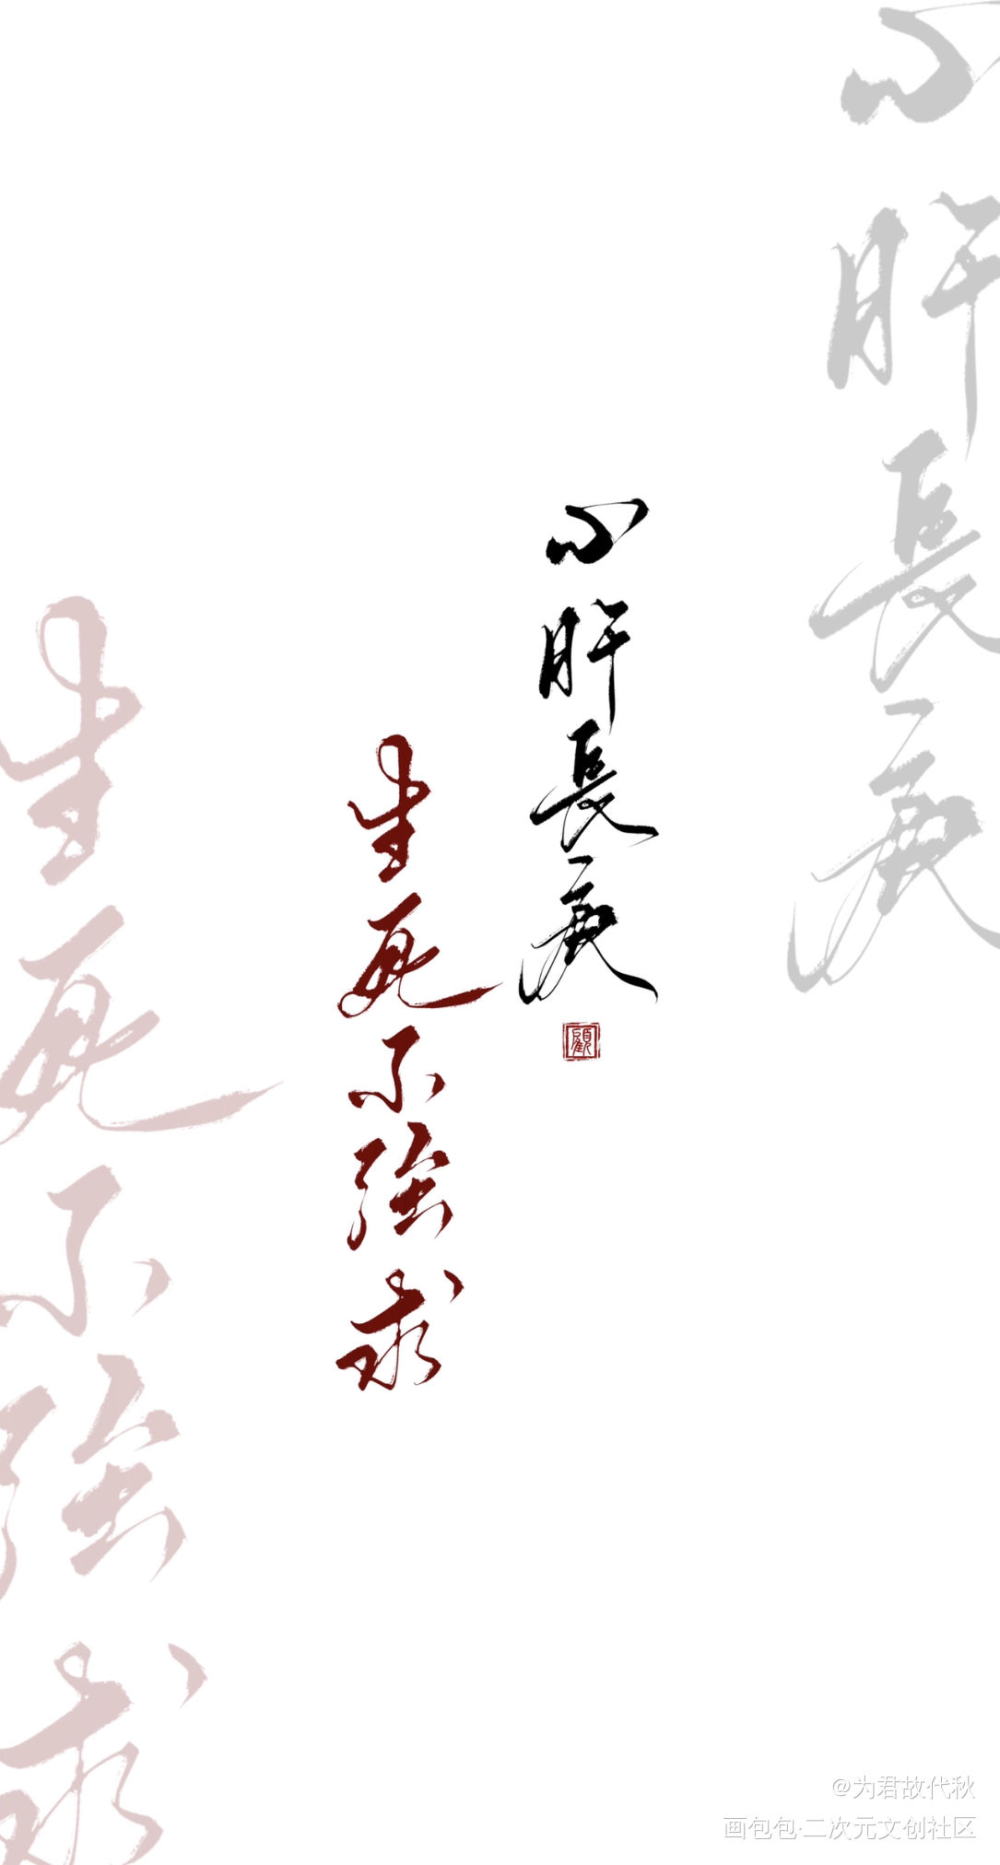 心肝長庚
心肝長庚
顧
生死不強求
生死不強求
@为君故代秋
画包包·二次元文创社区